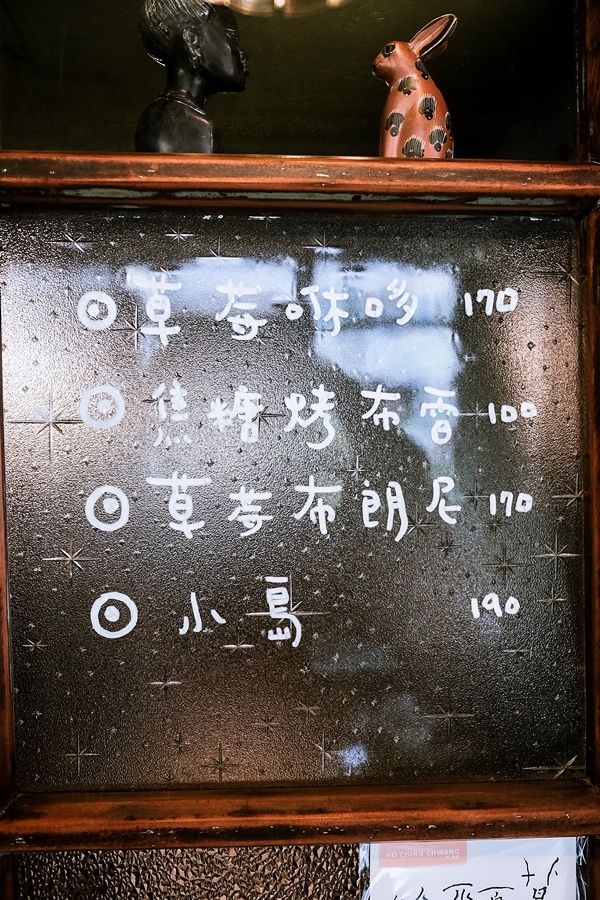 ◎草莓咻哆 170
◎焦糖烤布雷 100
◎草莓布朗尼 170
◎小島 190
HO CHING CHWANG